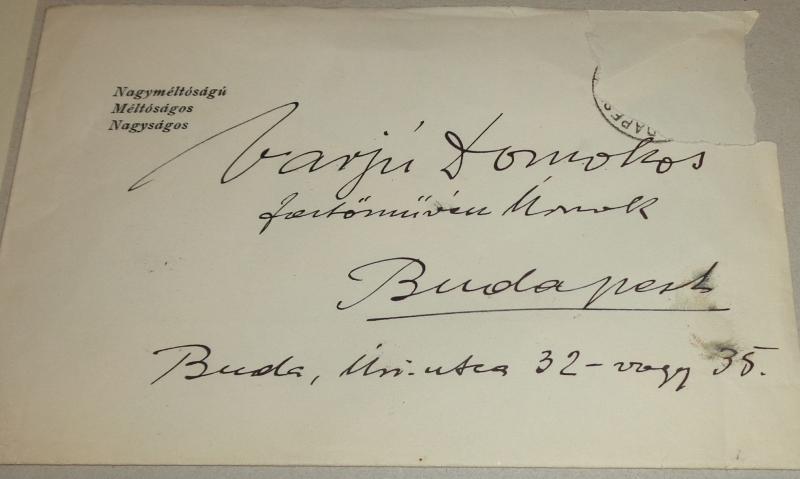 Nagyméltóságú
Méltóságos
Nagyságos
Varjú Domokos
festőművész Úrnak
Budapest
Buda, Úri-utca 32-vagy 35.